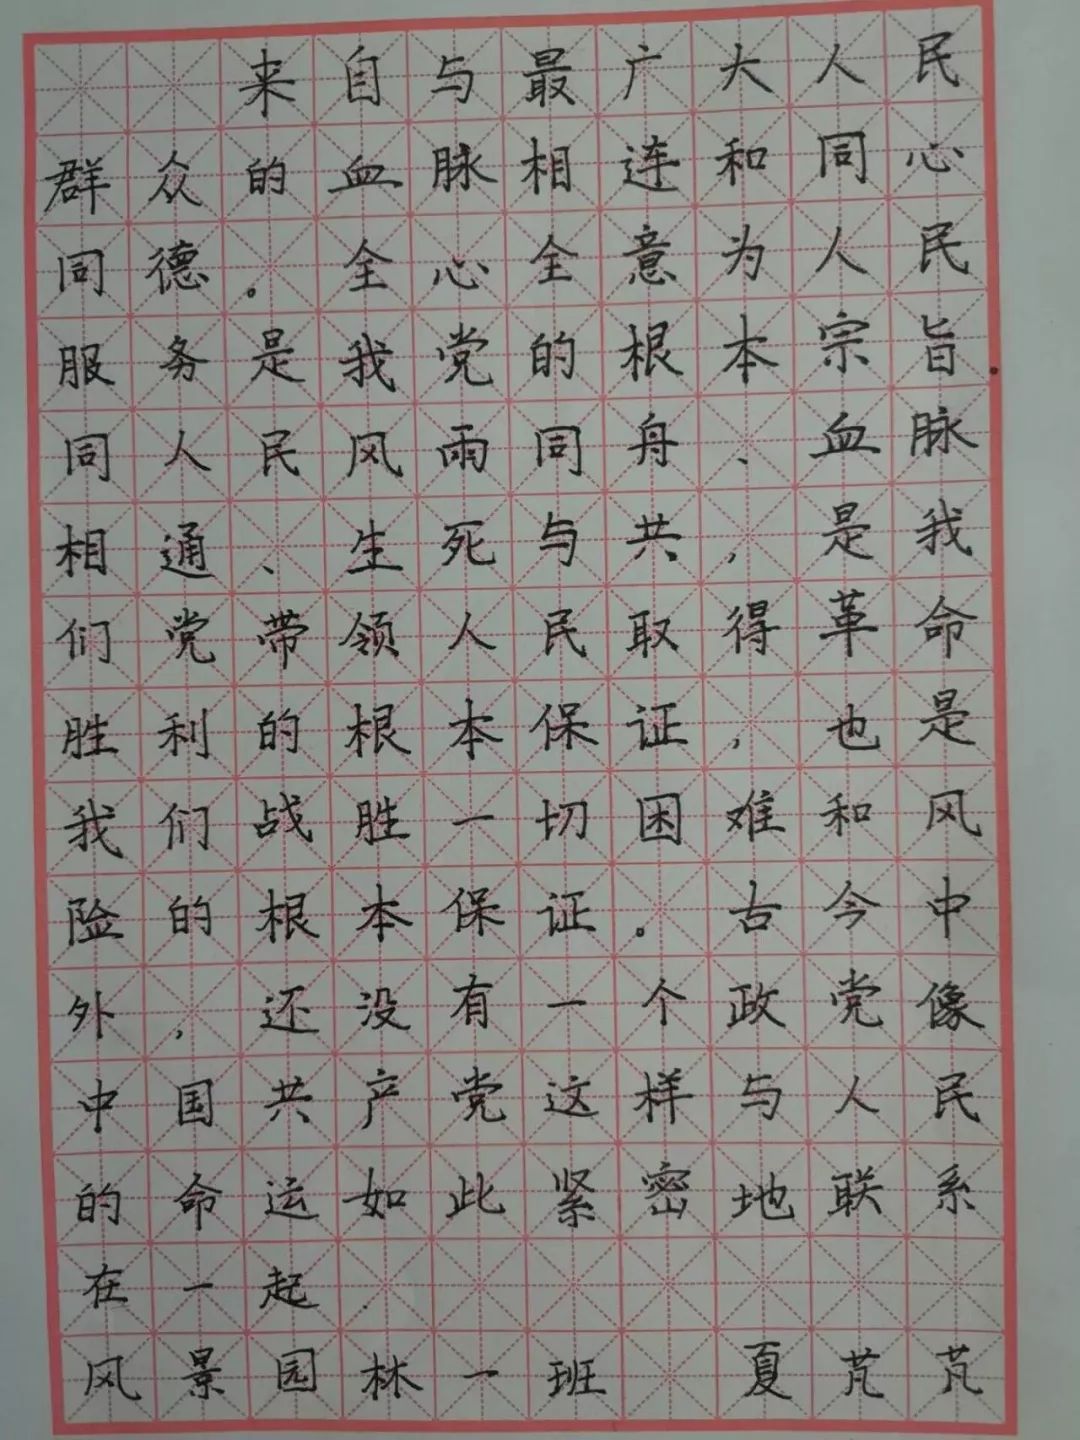 来自与最广大人民
群众的血脉相连和同心
同德。全心全意为人民
服务是我党的根本宗旨.
同人民风雨同舟、血脉
相通、生死与共，是我
们党带领人民取得革命
胜利的根本保证，也是
我们战胜一切困难和风
险的根本保证。古今中
外，还没有一个政党像
中国共产党这样与人民
的命运如此紧密地联系
在一起.
风景园林一班 夏芃芃